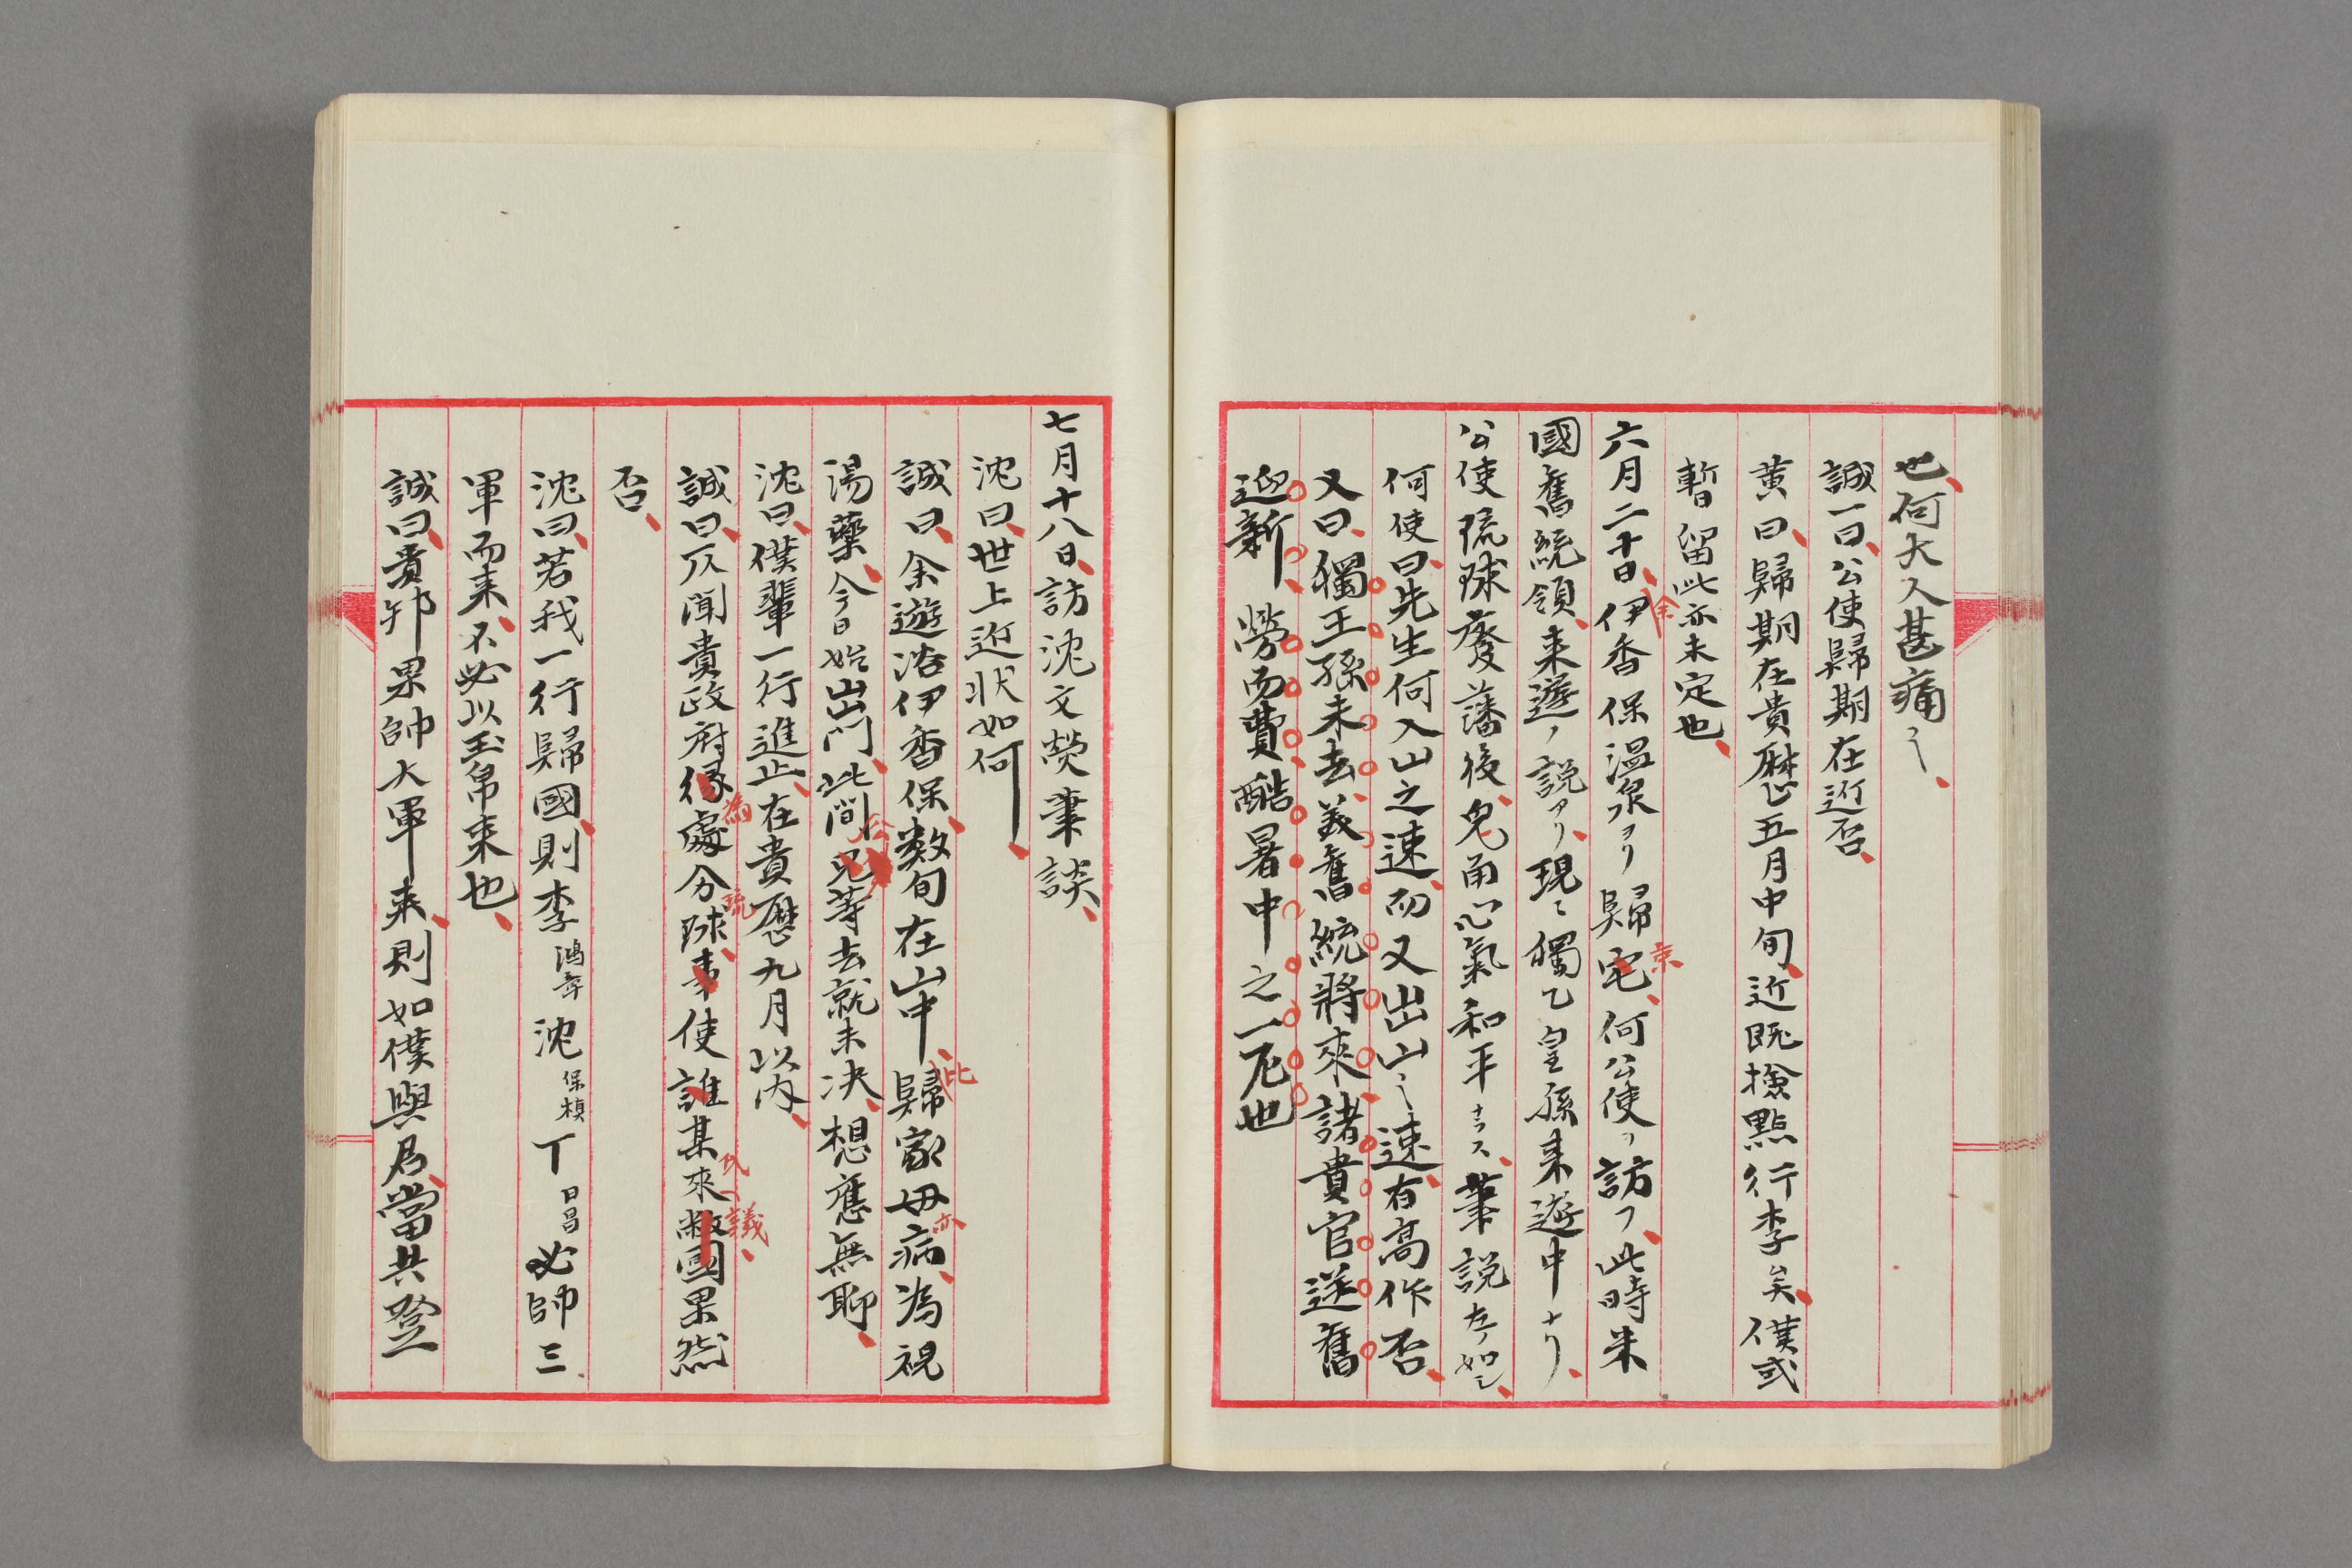 也、何大人甚痛〻、
誠一曰、公使歸期在近否、
黄曰、歸期在貴曆五月中旬、近既撿點行李矣、僕或
暫留此亦未定也、
六月二十日、余伊香保温泉ヨリ歸宅京、何公使ヲ訪フ、此時米
國舊統領、来遊ノ説アリ、現ニ獨乙皇孫来遊中ナリ、
公使琉球癈藩後、兎角心氣和平ナラス、筆説左ノ如シ、
何使曰、先生何入山之速、而又出山之速、有高作否、
又曰、獨王孫未去、美舊統將來、諸貴官送舊
迎新、勞而費、酷暑中之一厄也
七月十八日、訪沈文熒筆談、
沈曰、世上近状如何、
誠曰、余遊浴伊香保、数旬在山中、此歸家母亦病、為視
湯藥、今日始出門、此間公兄等去就未决、想應無聊、
沈曰、僕輩一行進止、在貴曆九月以内、
誠曰、仄聞貴政府縁為處分琉球事、使誰某來議敝國果然
否、
沈曰、若我一行歸國、則李鴻章沈保楨丁日昌必帥三
軍而来、不必以玉帛来也、
誠曰、貴邦果帥大軍来、則如僕與君、當共登